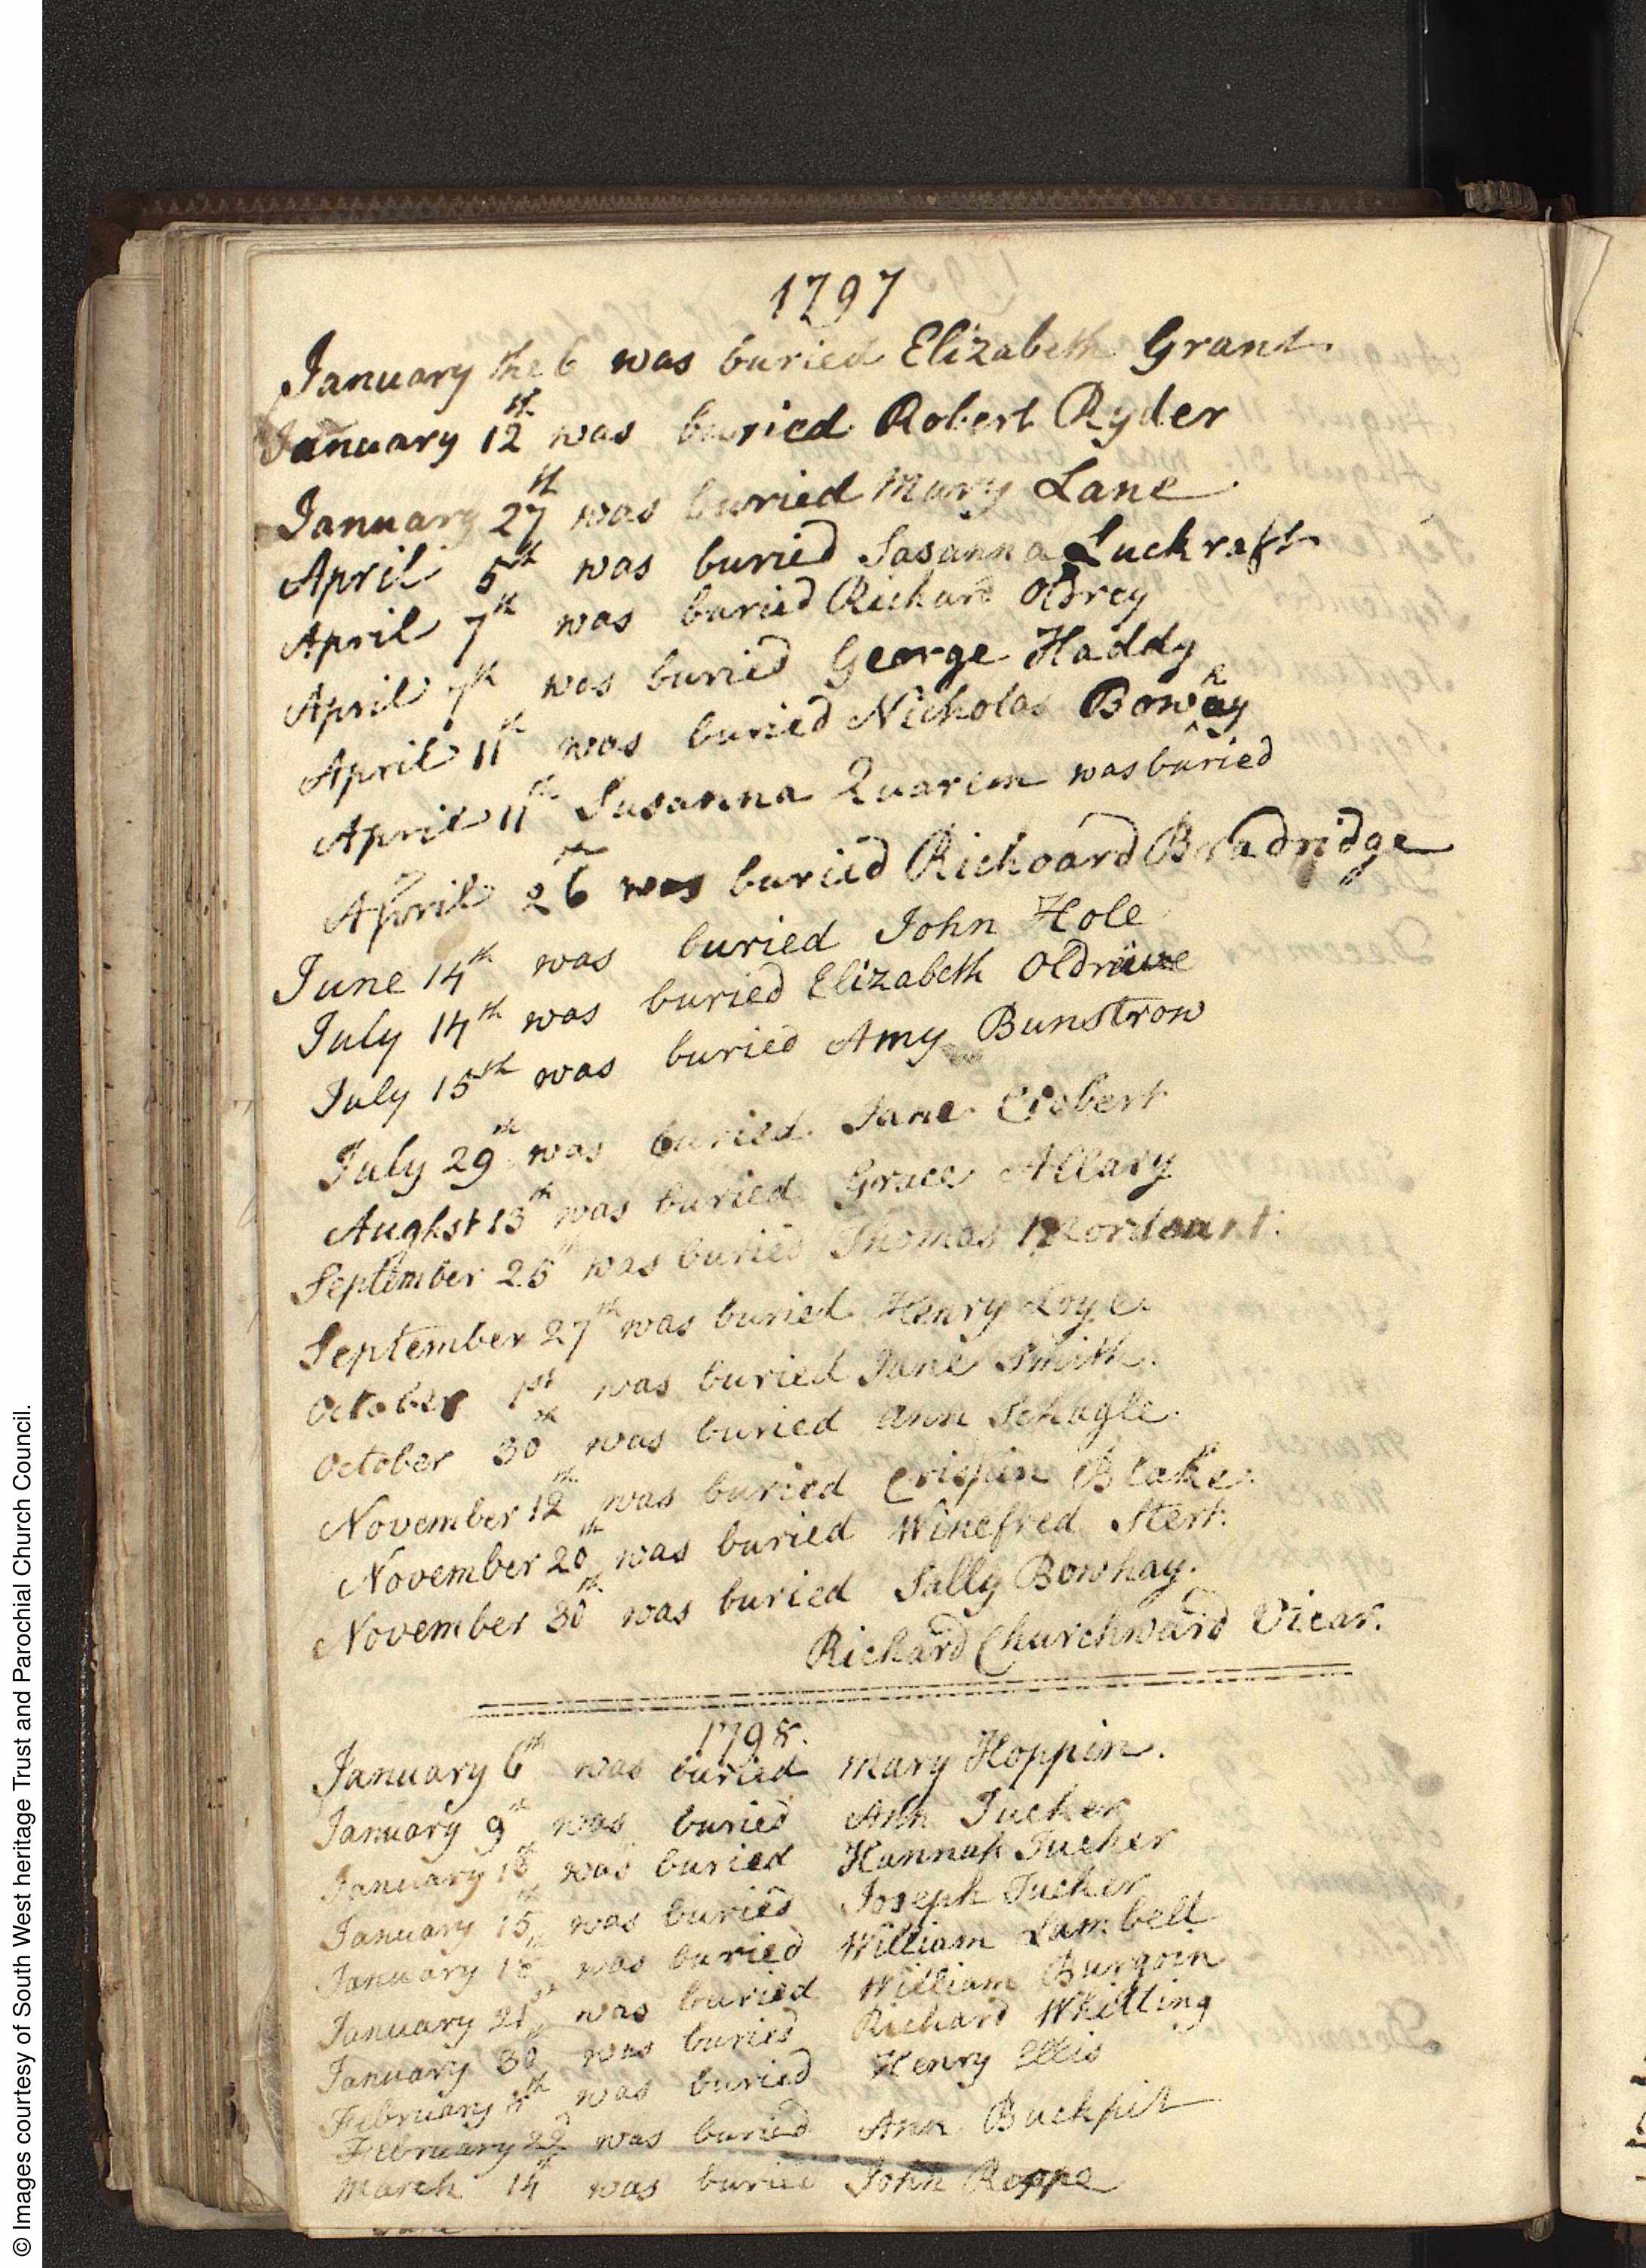 1797
January the 6 was buried Elizabeth Grant.
January 12th was buried Robert Ryder
January 27th was buried Mary Lane
April 5th was buried Susanna Luckraft
April 7th was buried Richard Oldrey
April 7th was buried George Haddy
April 11th was buried Nicholas Bowhay
April 11th Susanna Quarem was buried
April 26th was buried Richoard Bradridge
June 14th was buried John Hole
July 14th was buried Elizabeth
July 15th was buried Amy Bunstrow
July 29th was buried Jane
Aughst 13th was buried Grace Allary
September 25th was buried Thomas Mordaunt.
September 27th was buried Henry Loye.
October 1st was buried Jane Smith.
October 30th was buried Ann
November 12th was buried Crispin Blake.
November 20th was buried Winefred Stert.
November 30th was buried Sally Bowhay.
Richard Churchward Vicar.
1798.
January 6th was buried Mary Hoppin.
January 9th was buried Ann Tucker
January was buried Hannah Tucker
January 15th was buried Joseph Tucker
January was buried William Lambell
January 21st was buried William Burgoin
January 30th was buried Richard Whitting
February was buried Henry Ellis
February 22d was buried Ann Buckpit
March 14th was buried John Roppe
© Images courtesy of South West heritage Trust and Parochial Church Council.